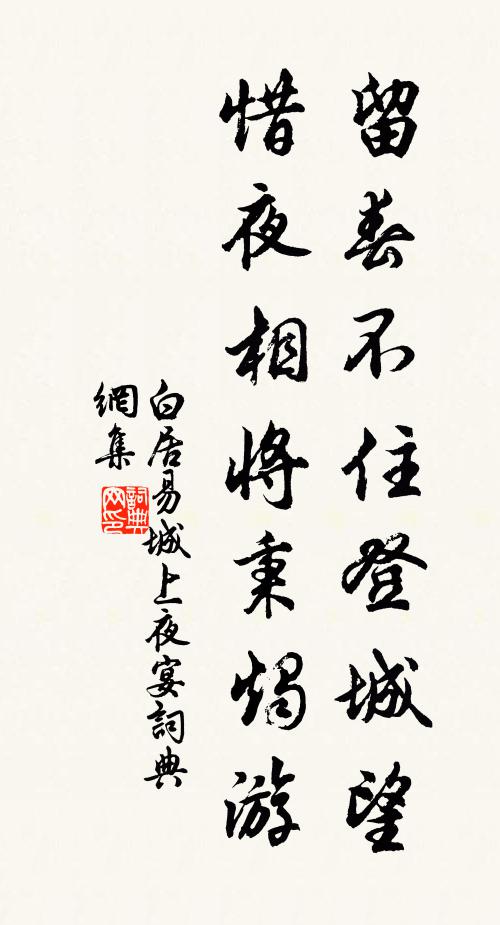 留春不住登城望
惜夜相將秉燭游
白居易城上夜宴詞典
網集
詞典
网印